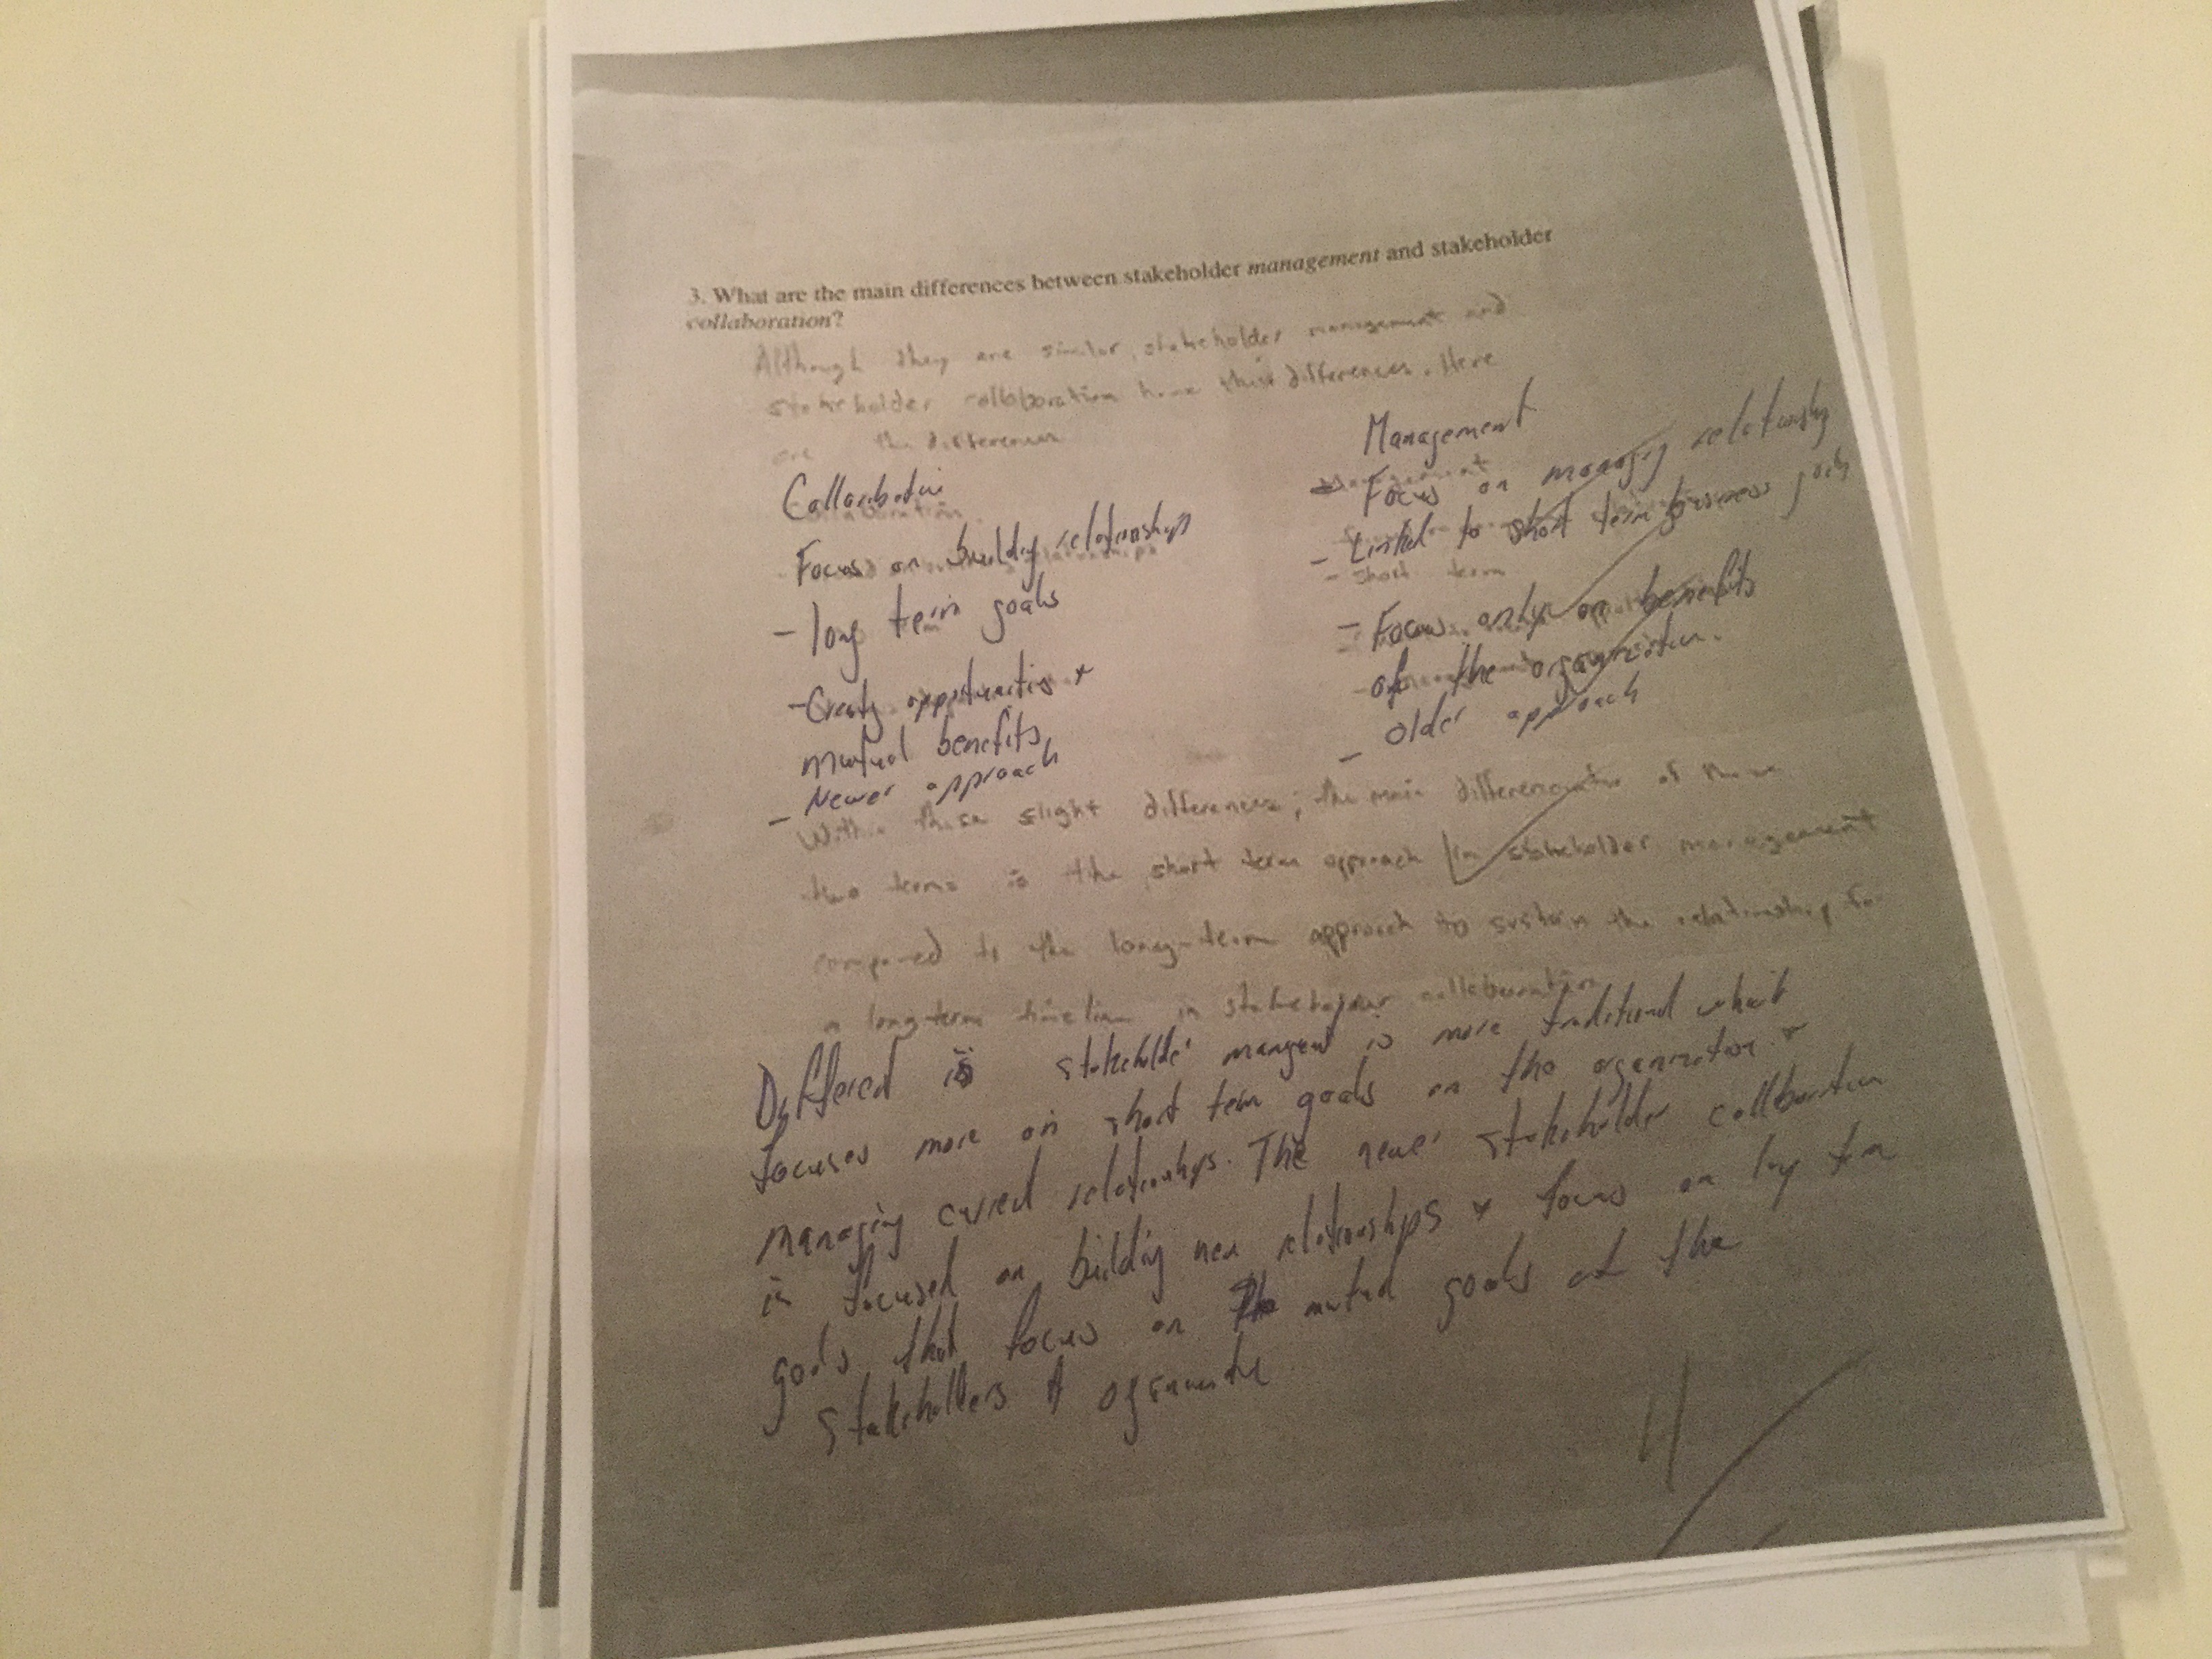 3. What are the main differences between stakeholder management and stakeholder
collaboration?
Although they are similar, stakeholder management and
stakeholder collaboration have differences. Here
are the differences
Management
Focus on managing relationship
- Linked to short term business
- short term
- Focus only on benefits
of the organization.
- older approach
Focus on building relationships
- long term goals
- opportunities +
Mutual benefits
- Newer approach
Within these slight differences, the main of these
two terms is the short term approach in stakeholder management
compared to the long-term approach to sustain the relationship for
a long term timeline in collaboration
is more traditional
focuses more on short term goals on the organization +
managing relationships. The newer stakeholder collaboration
is focused on building new relationships + focus on
goals that focus on mutual goals of the
stakeholders +